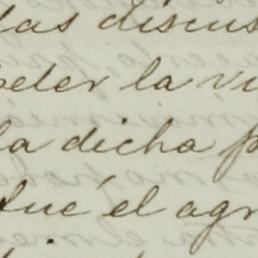 las discus
peler la vi
la dicha p
fué el agr